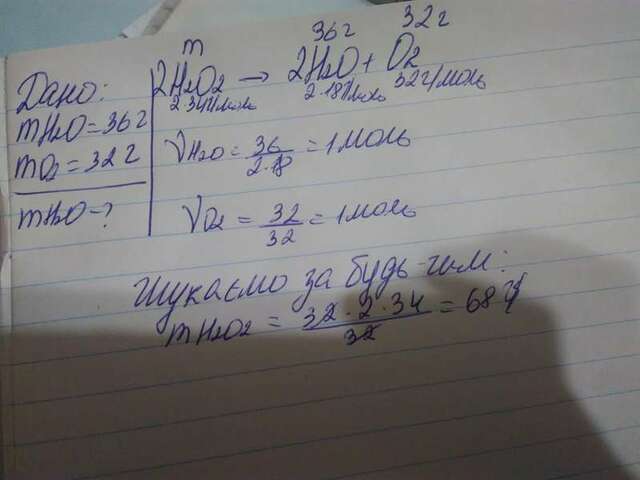 Дано:
mH2O = 36 г
mO2 = 32 г
mH2O - ?
m 36 г 32 г
2H2O2 → 2H2O + O2
2·34г/моль 2·18г/моль 32г/моль
νH2O = 36/2·18 = 1 моль
νO2 = 32/32 = 1 моль
Шукаємо за будь-чим:
mH2O2 = 32·2·34/32 = 68 г